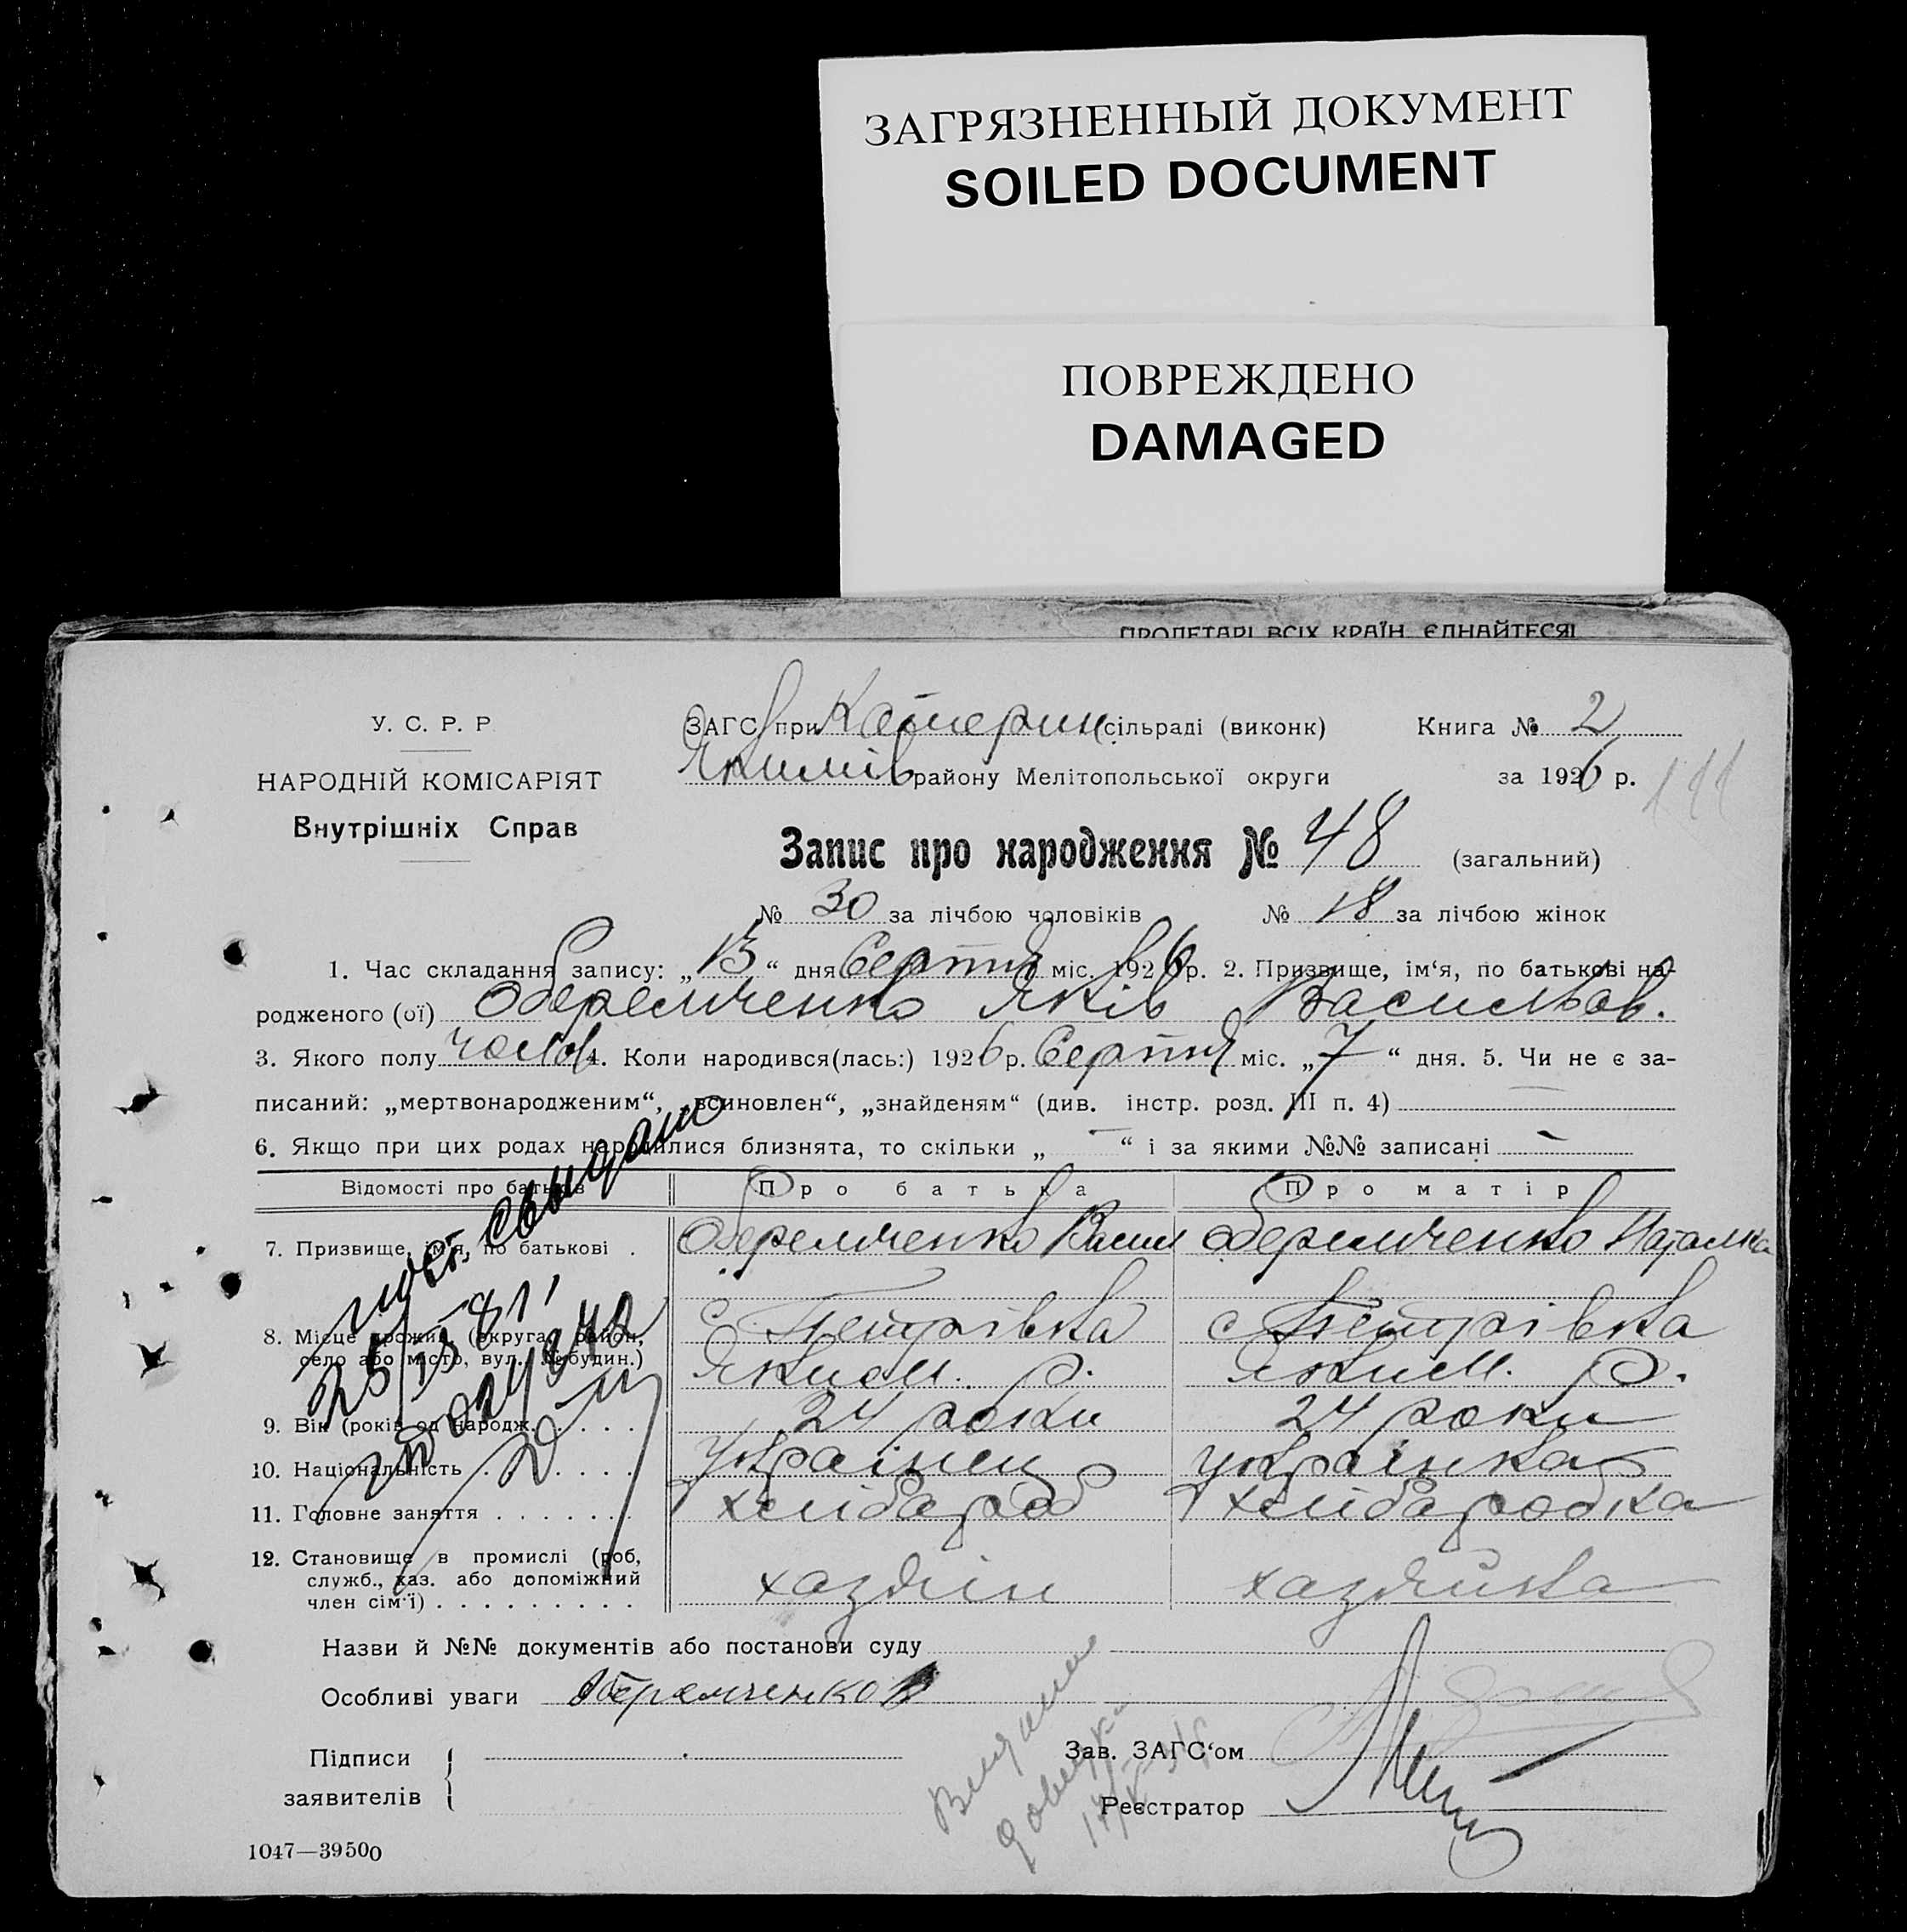 ЗАГРЯЗНЕННЫЙ ДОКУМЕНТ
SOILED DOCUMENT
ПОВРЕЖДЕНО
DAMAGED
ПРОЛЕТАРІ ВСІХ КРАЇН, ЄДНАЙТЕСЯ!
У. С. Р. Р.
НАРОДНІЙ КОМІСАРІЯТ
Внутрішніх Справ
ЗАГС при Катерин сільраді (виконк) Книга № 2
Якимів району Мелітопольської округи за 1926 р.
Запис про народження № 48 (загальний)
№ 30 за лічбою чоловіків № 18 за лічбою жінок
1. Час складання запису: „13“ дня Серпня міс. 1926 р. 2. Призвище, ім‘я, по батькові на-
родженого (ої) Оберемченко Яків Васильов.
3. Якого полу чолов 4. Коли народився(лась:) 1926 р. Серпня міс. „7“ дня. 5. Чи не є за-
писаний: „мертвонародженим“, „всиновлен“, „знайденям“ (див. інстр. розд. III п. 4)
6. Якщо при цих родах народилися близнята, то скільки „ - “ і за якими №№ записані -
Відомості про батьків Про батька Про матір
7. Призвище, ім‘я, по батькові . Оберемченко Васил Оберемченко Наталка
8. Місце прожив. (округа, район, с Петрівка с Петрівка
село або місто, вул., № будин.) Яким. р. Яким. р.
9. Вік (років од народж. . . . . 24 роки 24 роки
10. Національність . . . . . Українец українка
11. Головне заняття . . . . . . . хлібароб хлібаробка
12. Становище в промислі (роб,
служб., хаз. або допоміжний
член сім‘ї) . . . . . . . . . хазяін хазяйка
Назви й №№ документів або постанови суду
Особливі уваги Оберемченко В
Підписи
заявителів
Зав. ЗАГС‘ом
Реєстратор
1047—39500